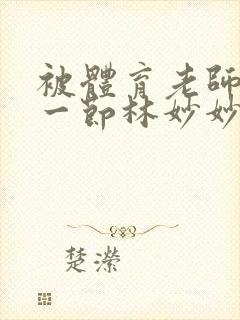 被體育老師
一節林妙妙
楚濴